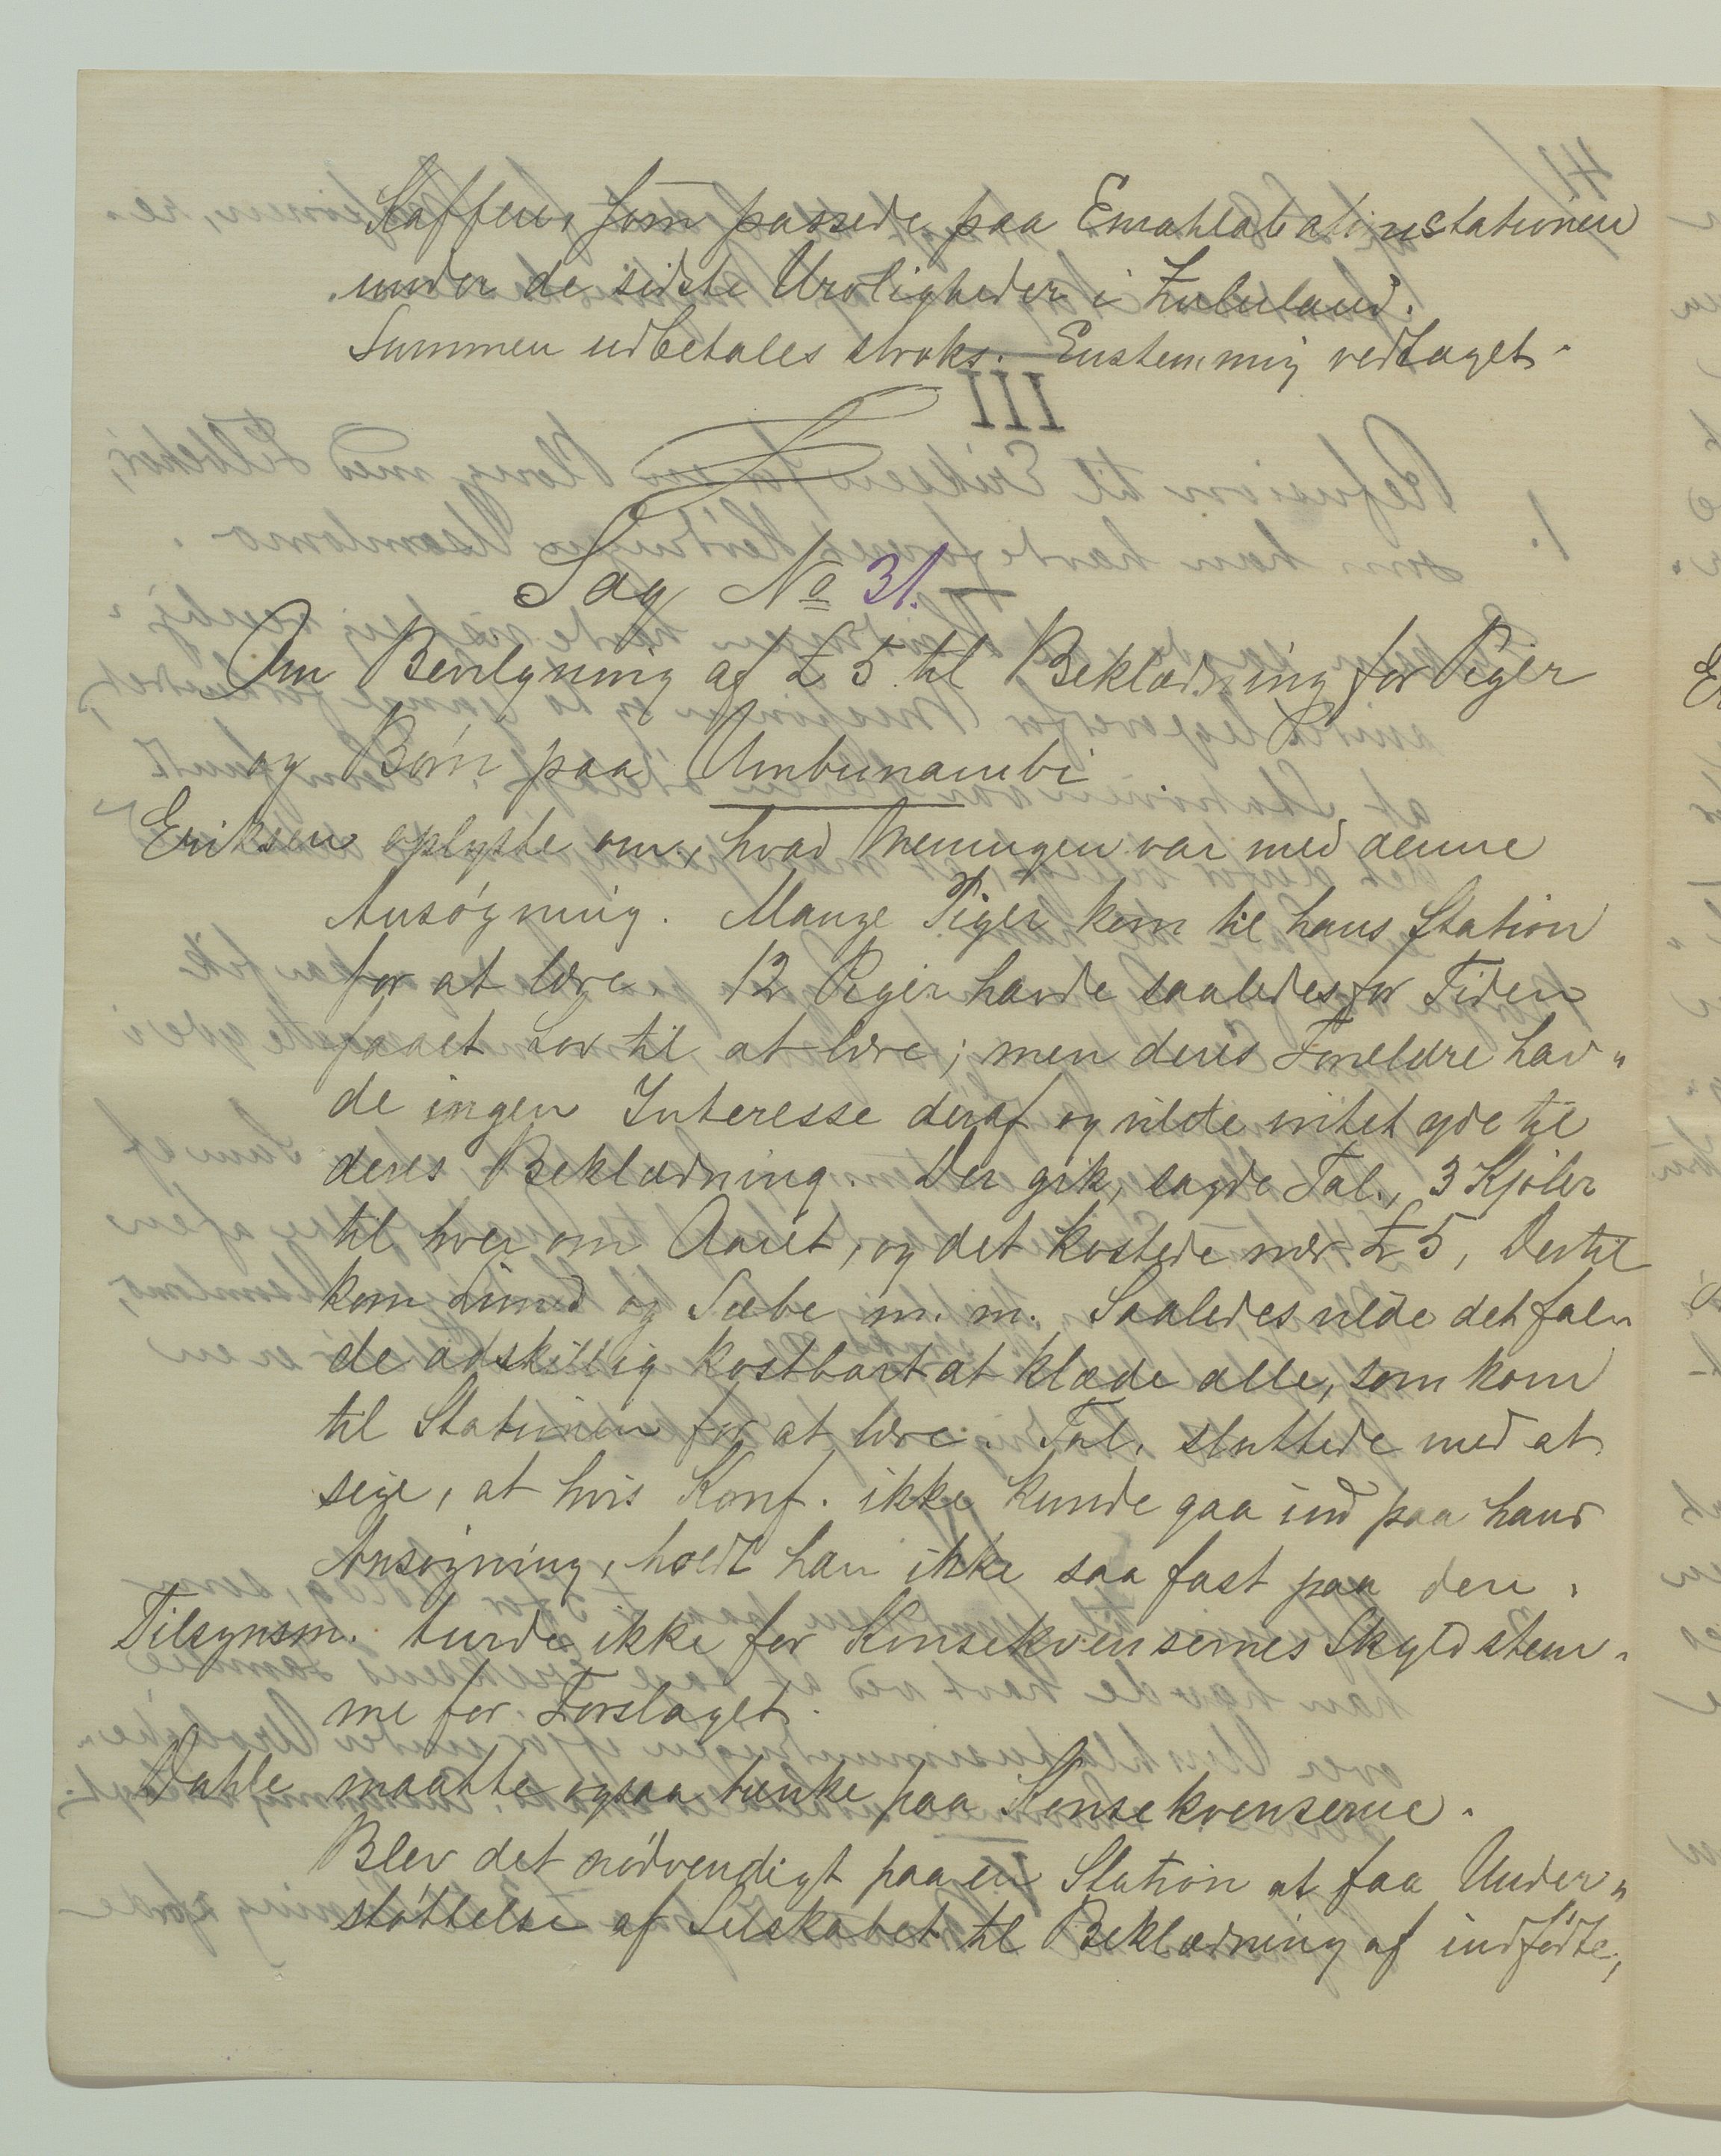 Kaffere, som passede paa Emahlabatinstationen
under de sidste Uroligheder i Zululand.
Summen udbetales straks. Enstemmig vedtaget.
Sag No 31.
Om Bevilgning af £ 5 til Beklædning for Piger
og Børn paa Umbunambi
Eriksen oplyste om, hvad Meningen var med denne
Ansøgning. Mange Piger kom til hans Station
for at lære. 12 Piger havde saaledes for Tiden
faaet Lov til at lære; men deres Forældre hav„
de ingen Interesse deraf og vilde intet yde til
deres Beklædning. Der gik, sagde Tal., 3 Kjoler
til hver om Aaret, og det kostede nær £ 5, Dertil
kom Lund og Sæbe m. m. Saaledes vilde det fal„
de adskillig kostbart at klæde alle, som kom
til Stationen for at lære. Tal. sluttede med at
sige, at hvis Konf. ikke kunde gaa ind paa hans
Ansøgning, holdt han ikke saa fast paa den.
Tilsynsm. turde ikke for Konsekvensernes Skyld stem„
me for Forslaget.
Dahle maatte ogsaa tænke paa Konsekvenserne.
Blev det nødvendigt paa en Station at faa Under„
støttelse af Selskabet til Beklædning af indfødte,